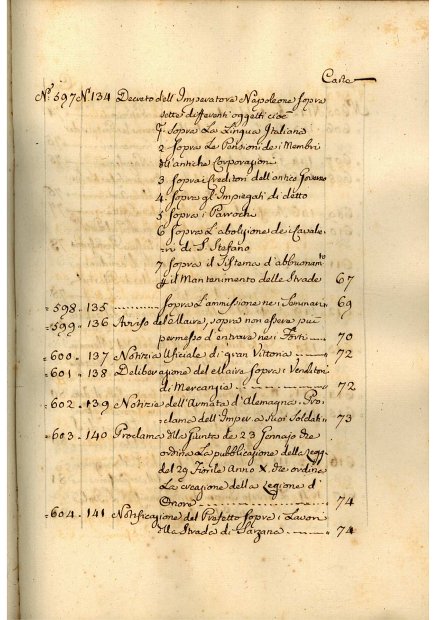 Carte
N.° 597 N.° 134 Decreto dell'Imperatore Napoleone sopra
sette differenti oggetti cioè
1. Sopra La Lingua Italiana
2 Sopra Le Pensioni de i Membri
dll'antiche Corporazioni
3 Sopra i Creditori dell'antico Governo
4. Sopra gl'Impiegati di detto
5 Sopra i Parrochi
6 Sopra L'abolizione de i Cavale-
ri di S. Stefano
7. Sopra il Sistema d'abbuonam.to
p il Mantenimento delle Strade 67
= 598 - 135 Sopra L'amissione ne i Seminari 69
= 599 - 136 Avviso del Maire, sopra non essere più
permesso d'entrare ne i Forti 70
= 600 - 137 Notizia Uficiale di gran Vittoria 72
= 601 - 138 Deliberazione del Maire sopra i Venditori
di Mercanzia 72
= 602 - 139 Notizie dell'Armata d'Alemagna. Pro-
clama dell'Imper. a suoi Soldati 73
= 603 - 140 Proclama dlla Giunta de 23 Gennajo che
ordina La pubblicazione della Legg.
del 29 Fiorile Anno X. che ordina
La creazione della Legione d'
Onore 74
= 604 - 141 Notificazione del Prefetto sopra i Lavori
dlla Strada di Sarzana 74